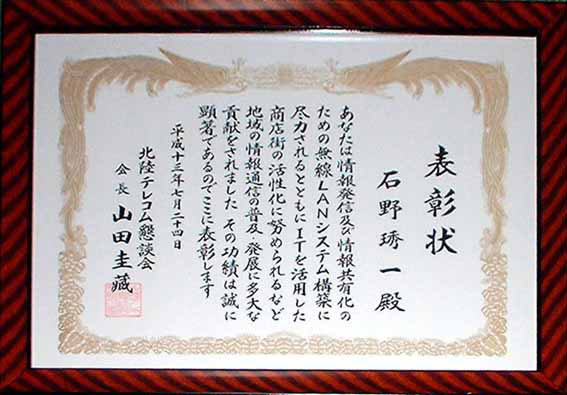 表彰状
石野琇一殿
あなたは情報発信及び情報共有化の
ための無線LANシステム構築に
尽力されるとともにITを活用した
商店街の活性化に努められるなど
地域の情報通信の普及、発展に多大な
貢献をされました その功績は誠に
顕著であるのでここに表彰します
平成十三年七月二十四日
北陸テレコム懇談会
会長 山田圭藏